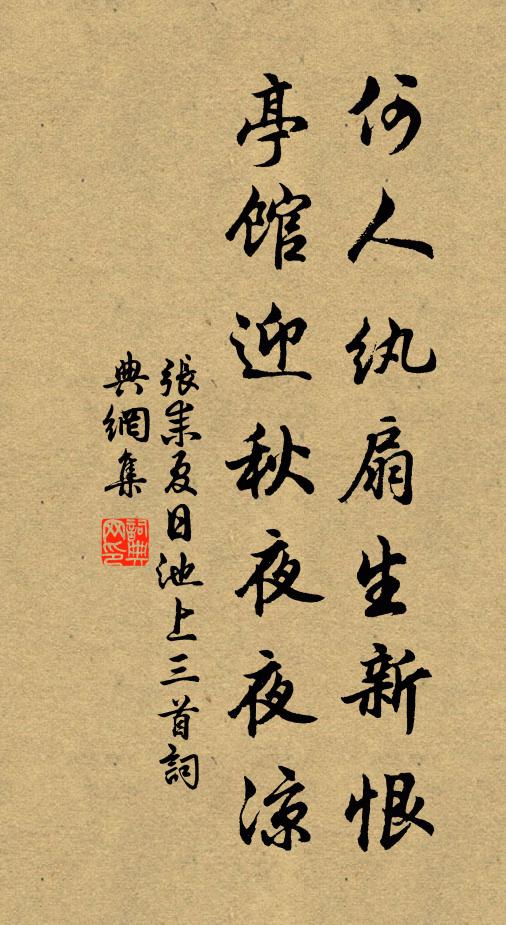 何人纨扇生新恨
亭馆迎秋夜夜凉
張耒夏日池上三首詞
典網集
詞典
网印